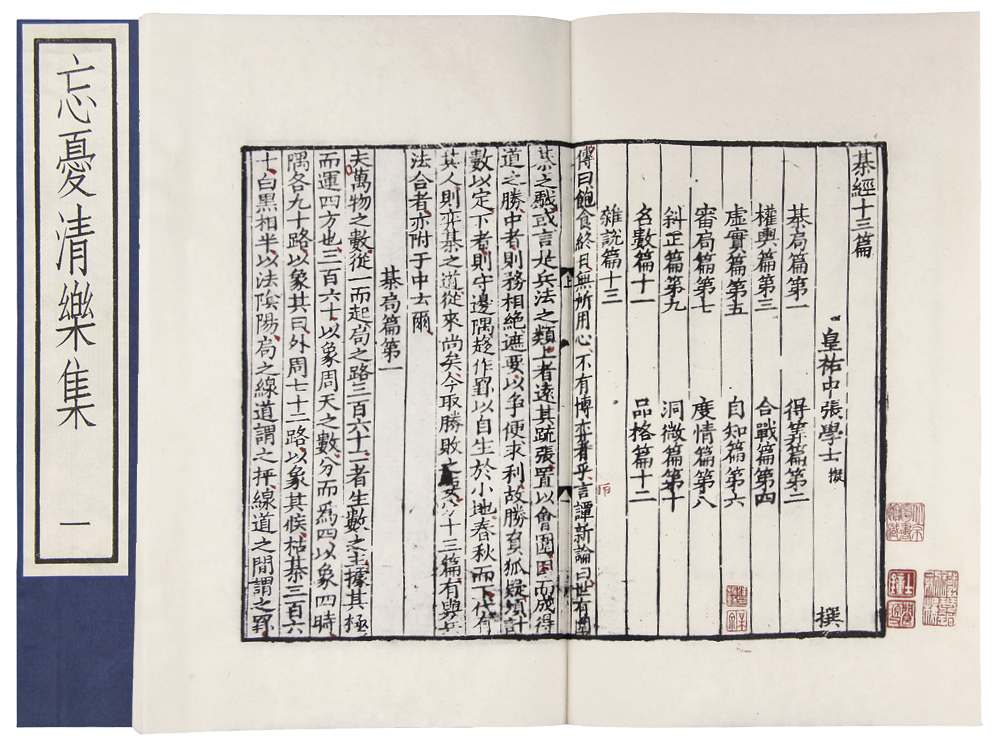 忘憂清樂集 一
棊經十三篇
皇祐中張學士擬 撰
棊局篇第一 得筭篇第二
權輿篇第三 合戰篇第四
虛實篇第五 自知篇第六
審局篇第七 度情篇第八
斜正篇第九 洞微篇第十
名數篇十一 品格篇十二
雜說篇十三
傳曰飽食終日無所用心不有博弈者乎言譚新論曰世有圍
棊之戲或言是兵法之類上者遠其疏張置以會圍因而成得
道之勝中者則務相絕遮要以爭便求利故勝負狐疑須計
數以定下者則守邊隅趍作罫以自生於小地春秋而下代有
其人則弈棊之道從來尚矣今取勝敗之要分十三篇有與兵
法合者亦附于中云爾
棊局篇第一
夫萬物之數從一而起局之路三百六十一一者生數之主據其極
而運四方也三百六十以象周天之數分而為四以象四時
隅各九十路以象其日外周七十二路以象其候枯棊三百六
十白黑相半以法陰陽局之線道謂之枰線道之間謂之罫